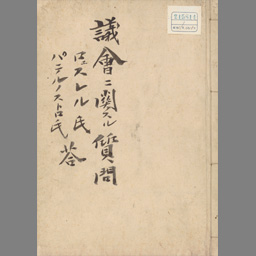 議會ニ関スル質問
ロエスレル氏
パテルノストロ氏 答